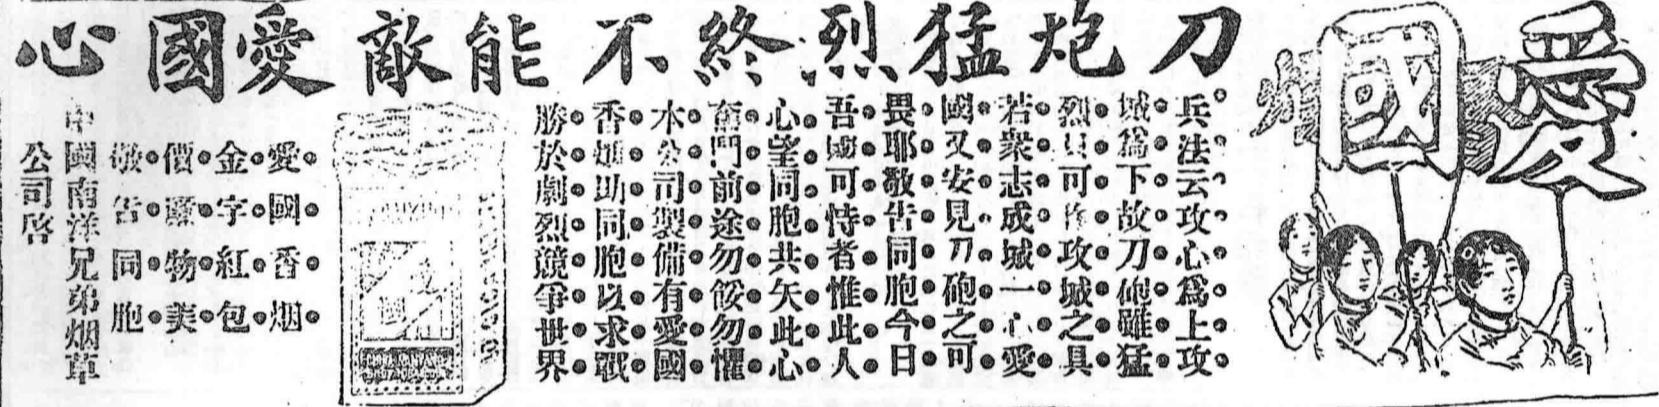 愛國
刀炮猛烈終不能敵愛國心
兵法云攻心爲上攻
城爲下故刀砲雖猛
烈只可作攻城之具
若衆志成城一心愛
國又安見刀砲之可
畏耶敬告同胞今日
吾國可恃者惟此人
心望同胞共矢此心
奮鬥前途勿餒勿懼
本公司製備有愛國
香烟助同胞以求戰
勝於劇烈競爭世界
愛國香烟
金字紅包
價廉物美
敬告同胞
中國南洋兄弟烟草
公司啓